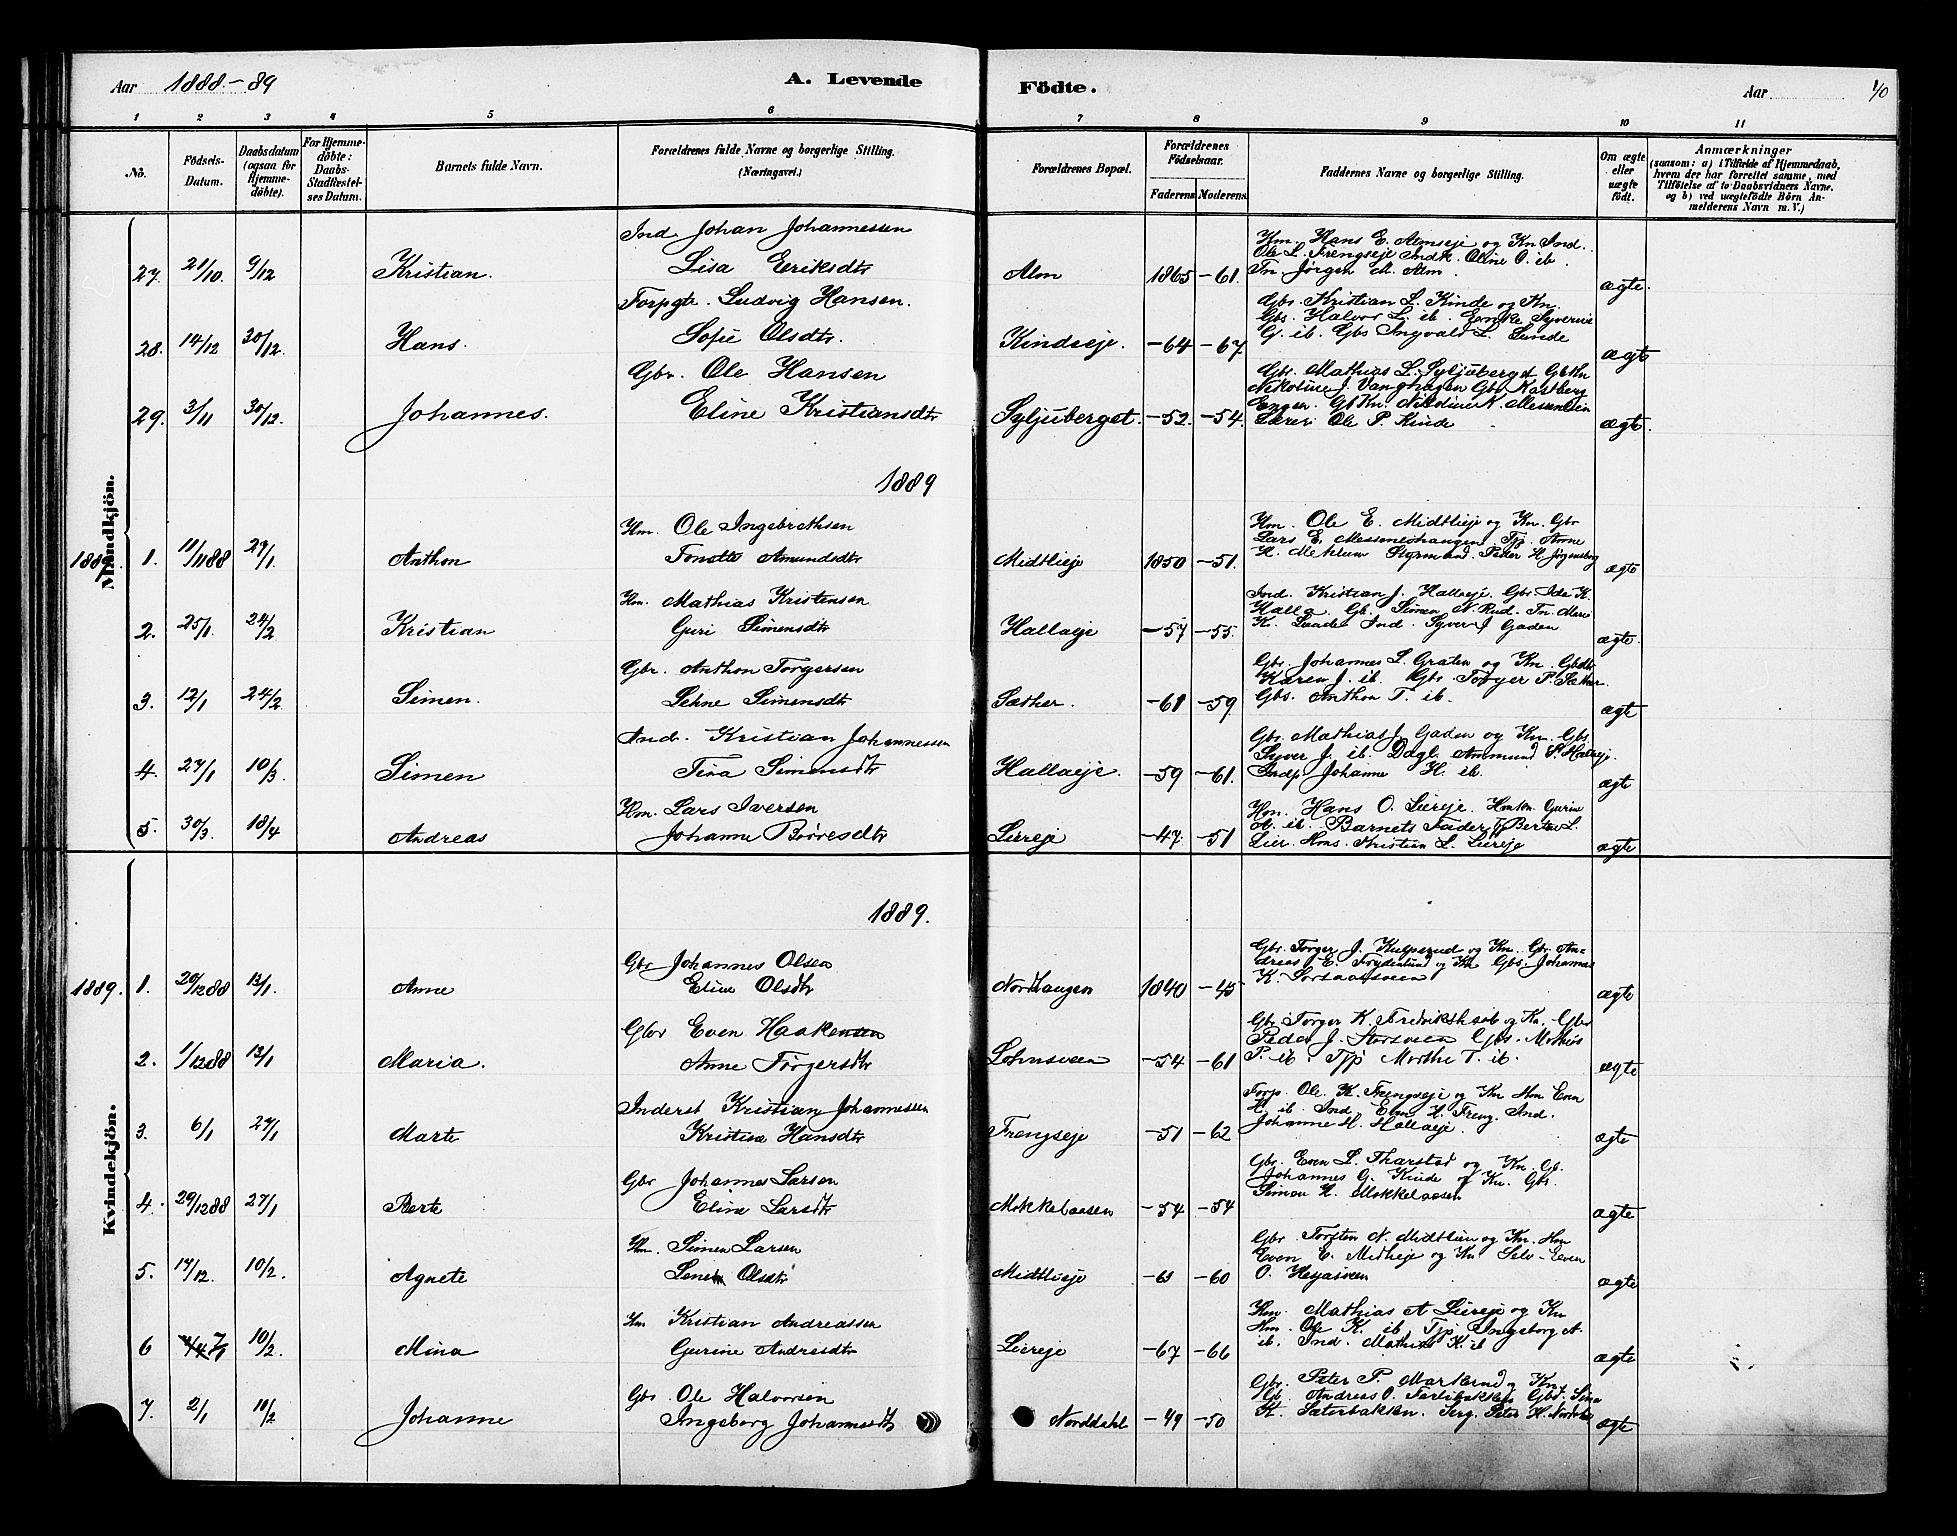 Aar 1888-89
A. Levende
Födte.
Aar
1 2 3 4 5 6 7 8 9 10 11
No.
Födsels-Datum.
Daabsdatum (ogsaa for Hjemmedöbte).
For Hjemmedöbte: Daabs-Stadfæstelses Datum.
Barnets fulde Navn.
Forældrenes fulde Navne og borgerlige Stilling. (Næringsvei.)
Forældrenes Bopæl.
Forældrenes Födselsaar.
Faderens Moderens
Faddernes Navne og borgerlige Stilling.
Om ægte eller uægte födt.
Anmærkninger
(saasom: a) i Tilfælde af Hjemmedaab, hvem der har forrettet samme, med Tilföielse af to Daabsvidners Navne, og b) ved uægtefödte Börn Anmelderens Navn m. V.)
Mandkjön.
Ind. Johan Johannessen
27. 21/10. 9/12 Kristian. Lisa Eeriksdtr Alm 1865 -61. ægte.
Hm. Hans E. Almseje og Kn Ind.
Ole L. Frengseje Indk. Oline O. ib
Tn Jörgen M. Alm
Forpgtr. Ludvig Hansen.
28. 14/12 30/12. Hans. Sofie Olsdtr. Kindseje. -64 -67 ægte
Gbs. Kristian L. Kinde og Kn.
Gbs. Halvor L. ib. Enke Syverine
G. ib. Gbs Ingvald L. Sunde
Gbr. Ole Hansen
29. 3/11 30/12. Johannes. Eline Kristiansdtr Syljuberget. -52. -54. ægte.
Gbr. Mathias L. Syljuberget GbKn
Nikoline J. Vanghagen Gbs Karlberg
Engen. GbKn.
Lærer Ole P. Kinde
1889
Hm. Ole Ingebrethsen
1889. 1. 11/11 88 27/1. Anthon Tonette Amundsdtr Midtlieje 1850 -51. ægte
Hm. Ole E. Midtlieje og Kn. Gbr
Lars E. Messenshaugen Tjp. Anne
H. Mehlum Styrmand. Peder H. Jörgensbog
Hm. Mathias Kristensen
2. 25/1. 24/2 Kristian Guri Simensdtr Hallaeje -57 -55. ægte.
Ind. Kristian J. Hallaeje. Gbr Ide K.
Halla. Gb. Simen N. Rud. Tn.
K. Ind. Syver J Gaden
Gbr. Anthon Torgersen
3. 12/1 24/2. Simen. Lehne Simensdtr Sæther. -61 -59. ægte
Gbr. Johannes L. Graten og Kn. Gbdtr
Karen J. ib. Gbs. Torger P. Sæther.
Gbs. Anthon T. ib.
Ind. Kristian Johannessen
4. 27/1 10/3. Simen Tina Simensdtr Hallaeje. -59 -61. ægte
Gbr. Mathias J Gaden og Kn. Gbs
Syver J. ib. Dagl. Ammund S. Hallaeje.
Indp Johanne H. ib.
Hm. Lars Iversen
5. 30/3. 18/4 Andreas Johanne Börresdtr Liereje -47 -51 ægte
Hm. Hans O. Liereje. Hmkn. Gurine
A. ib. Barnets Fader Tp Berta L.
Lier. Hms. Kristian L. Liereje
Kvindekjön.
1889.
Gbr Johannes Olsen
1889. 1. 20/12 88 13/1. Anne Eline Olsdtr Nordhaugen 1840 -45 ægte
Gbr. Torger J. Kulpsrud og Kn. Gbr. An-
dreas E. Frydenlund og Kn Gbs Johannes
K.
Gbr Even Haakensen
2. 1/12 88 13/1 Maria. Anne Torgersdtr -54 -61 ægte
Gbr Torger K. Fredrikshaab og Kn. Gbr
Peder J. Storsveen Gbs. Mathis
P. ib Tjp Marthe T. ib.
Inderst Kristian Johannessen
3. 6/1 27/1 Marte Kristine Hansdtr Frengseje -51 -62 ægte
Forp. Ole K. Frengseje og Kn Hm Even
H. ib. Ind. H. Freng. Ind.
Johanne H. Hallaeje.
Gbr Johannes Larsen
4. 29/12 88 27/1 Berte Eline Larsdtr Mokkelaasen -54 -54 ægte
Gbr. Even L. Tharstad og Kn. Gb.
Johannes O. Kinde og Kn. Gbs.
Simen H. Mokkelaasen
Hm. Simen Larsen
5. 17/12. 10/2. Agnete Lene Olsdtr Midtlieje -63 -60 ægte
Gbr Torsten N. Midtlien og Kn. Hm
Even E. Midlieje og Kn Selv. Even
O. Heyasveen
Hm Kristian Andreassen
6 7/1 10/2. Mina Gurine Andresdtr Liereje -67 -66 ægte
Hm. Mathias A Liereje og Kn
Hm. Ole K. ib Tjp Ingeborg A.
ib. Ind. Mathias K. ib
Gbr. Ole Halvorsen
7. 2/1 10/2 Johanne Ingeborg Johannesdtr Norddahl -49 -50 ægte
Gbr. Peter P. Markerud og Kn
Gb. Andreas O. Gbdt. Sina
K. Sæterbakken. Serg. Peter H.